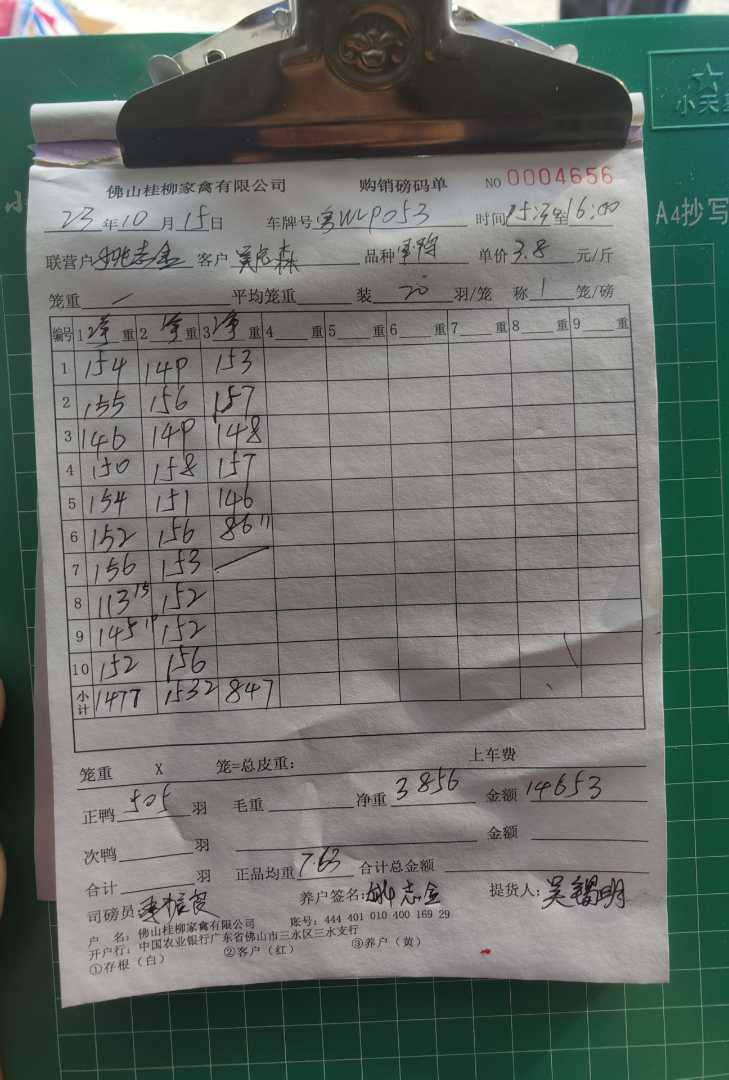 小天
A4抄写
佛山桂柳家禽有限公司 购销磅码单 NO 0004656
23 年 10 月 15 日 车牌号 粤WLP053 时间 15:3 至 16:00
联营户 姚志金 客户 吴志森 品种 单价 3.8 元/斤
笼重 / 平均笼重 装 20 羽/笼 称 1 笼/磅
编号 1 净 重 2 净 重 3 净 重 4 重 5 重 6 重 7 重 8 重 9 重
1 154 149 153
2 155 156 157
3 146 149 148
4 150 158 157
5 154 151 146
6 152 156 86 11
7 156 153
8 113 15 152
9 145 19 152
10 152 156
小计 1477 1532 847
笼重 X 笼=总皮重: 上车费
正鸭 505 羽 毛重 净重 3856 金额 14653
次鸭 羽 金额
合计 羽 正品均重 7.63 合计总金额
司磅员 养户签名: 姚志金 提货人: 吴锡明
户 名: 佛山桂柳家禽有限公司 账号: 444 401 010 400 169 29
开户行: 中国农业银行广东省佛山市三水区三水支行
①存根（白） ②客户（红） ③养户（黄）